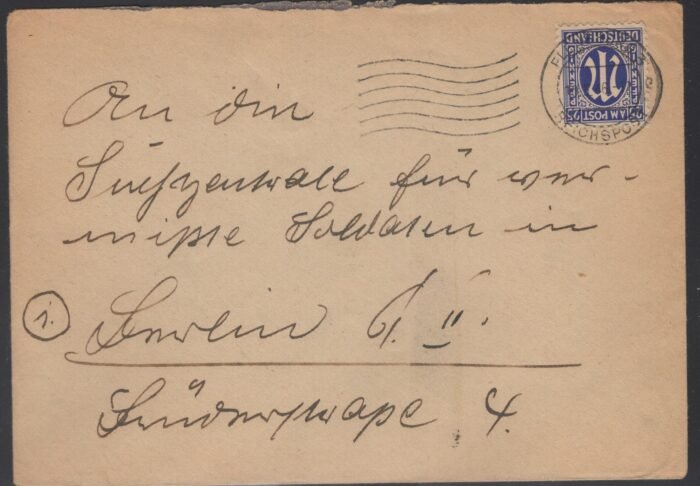 DEUTSCHLAND
AM POST
25
REICHSPOST
An die
Suchzentrale für ver-
mißte Soldaten in
1.
Berlin II.
Brüderstraße 4.